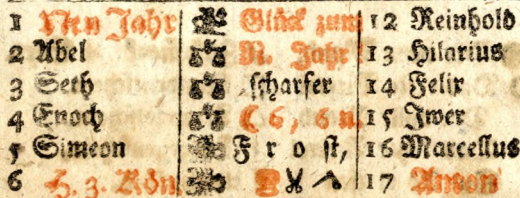 1 Neu Jahr Glück zum 12 Reinhold
2 Abel N. Jahr! 13 Hilarius
3 Seth scharfer 14 Felix
4 Enoch ☾ 6, 6 n. 15 Iwer
5 Simeon Frost, 16 Marcellus
6 H. 3. Kön. 17 Anton